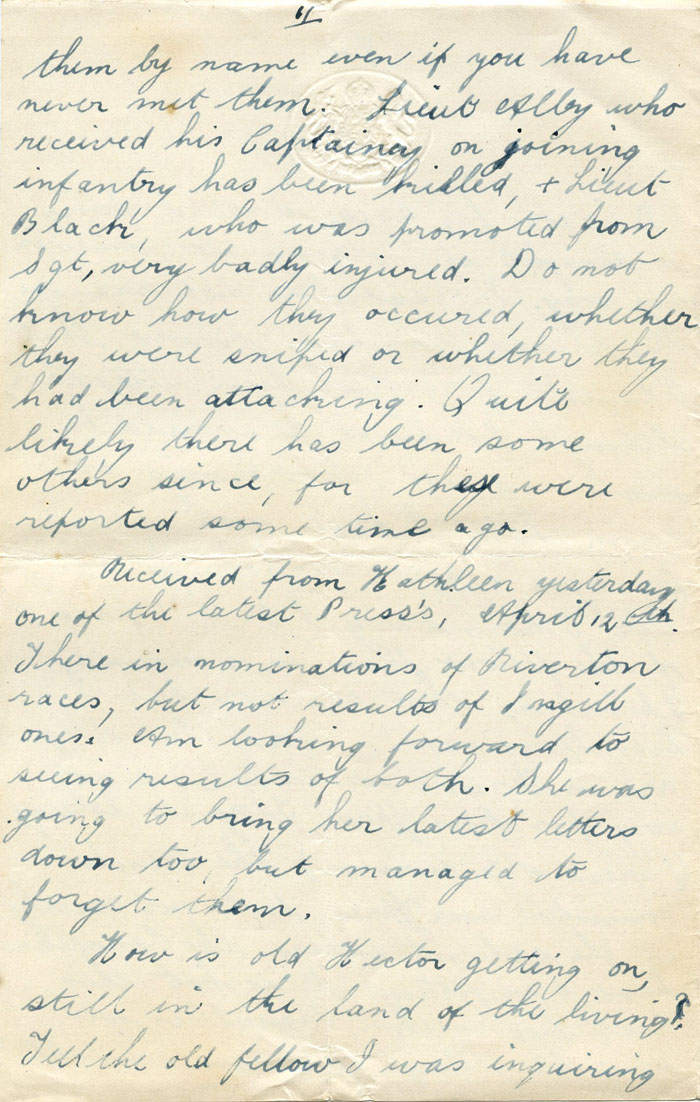 11
them by name even if you have
never met them. Lieut Alby who
received his Captaincy on joining
infantry has been killed, + Lieut
Black, who was promoted from
Sgt, very badly injured. Do not
know how they occured, whether
they were sniped or whether they
had been attacking. Quite
likely there has been some
others since, for these were
reported some time ago.
Received from Kathleen yesterday
one of the latest Press's, April 12th.
There in nominations of Riverton
races, but not results of Ingill
ones. Am looking forward to
seeing results of both. She was
going to bring her latest letters
down too, but managed to
forget them.
How is old Hector getting on,
still in the land of the living?
Tell the old fellow I was inquiring